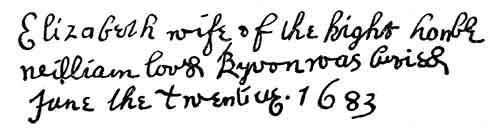 Elizabeth wife of the Right honble
William Lord Byron was buried
June the twentie. 1683